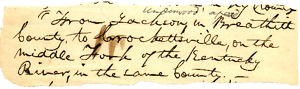 From Jackson, in Breathitt
County, to Crocketteville, on the
middle Fork of the Kentucky
River, in the same County.—